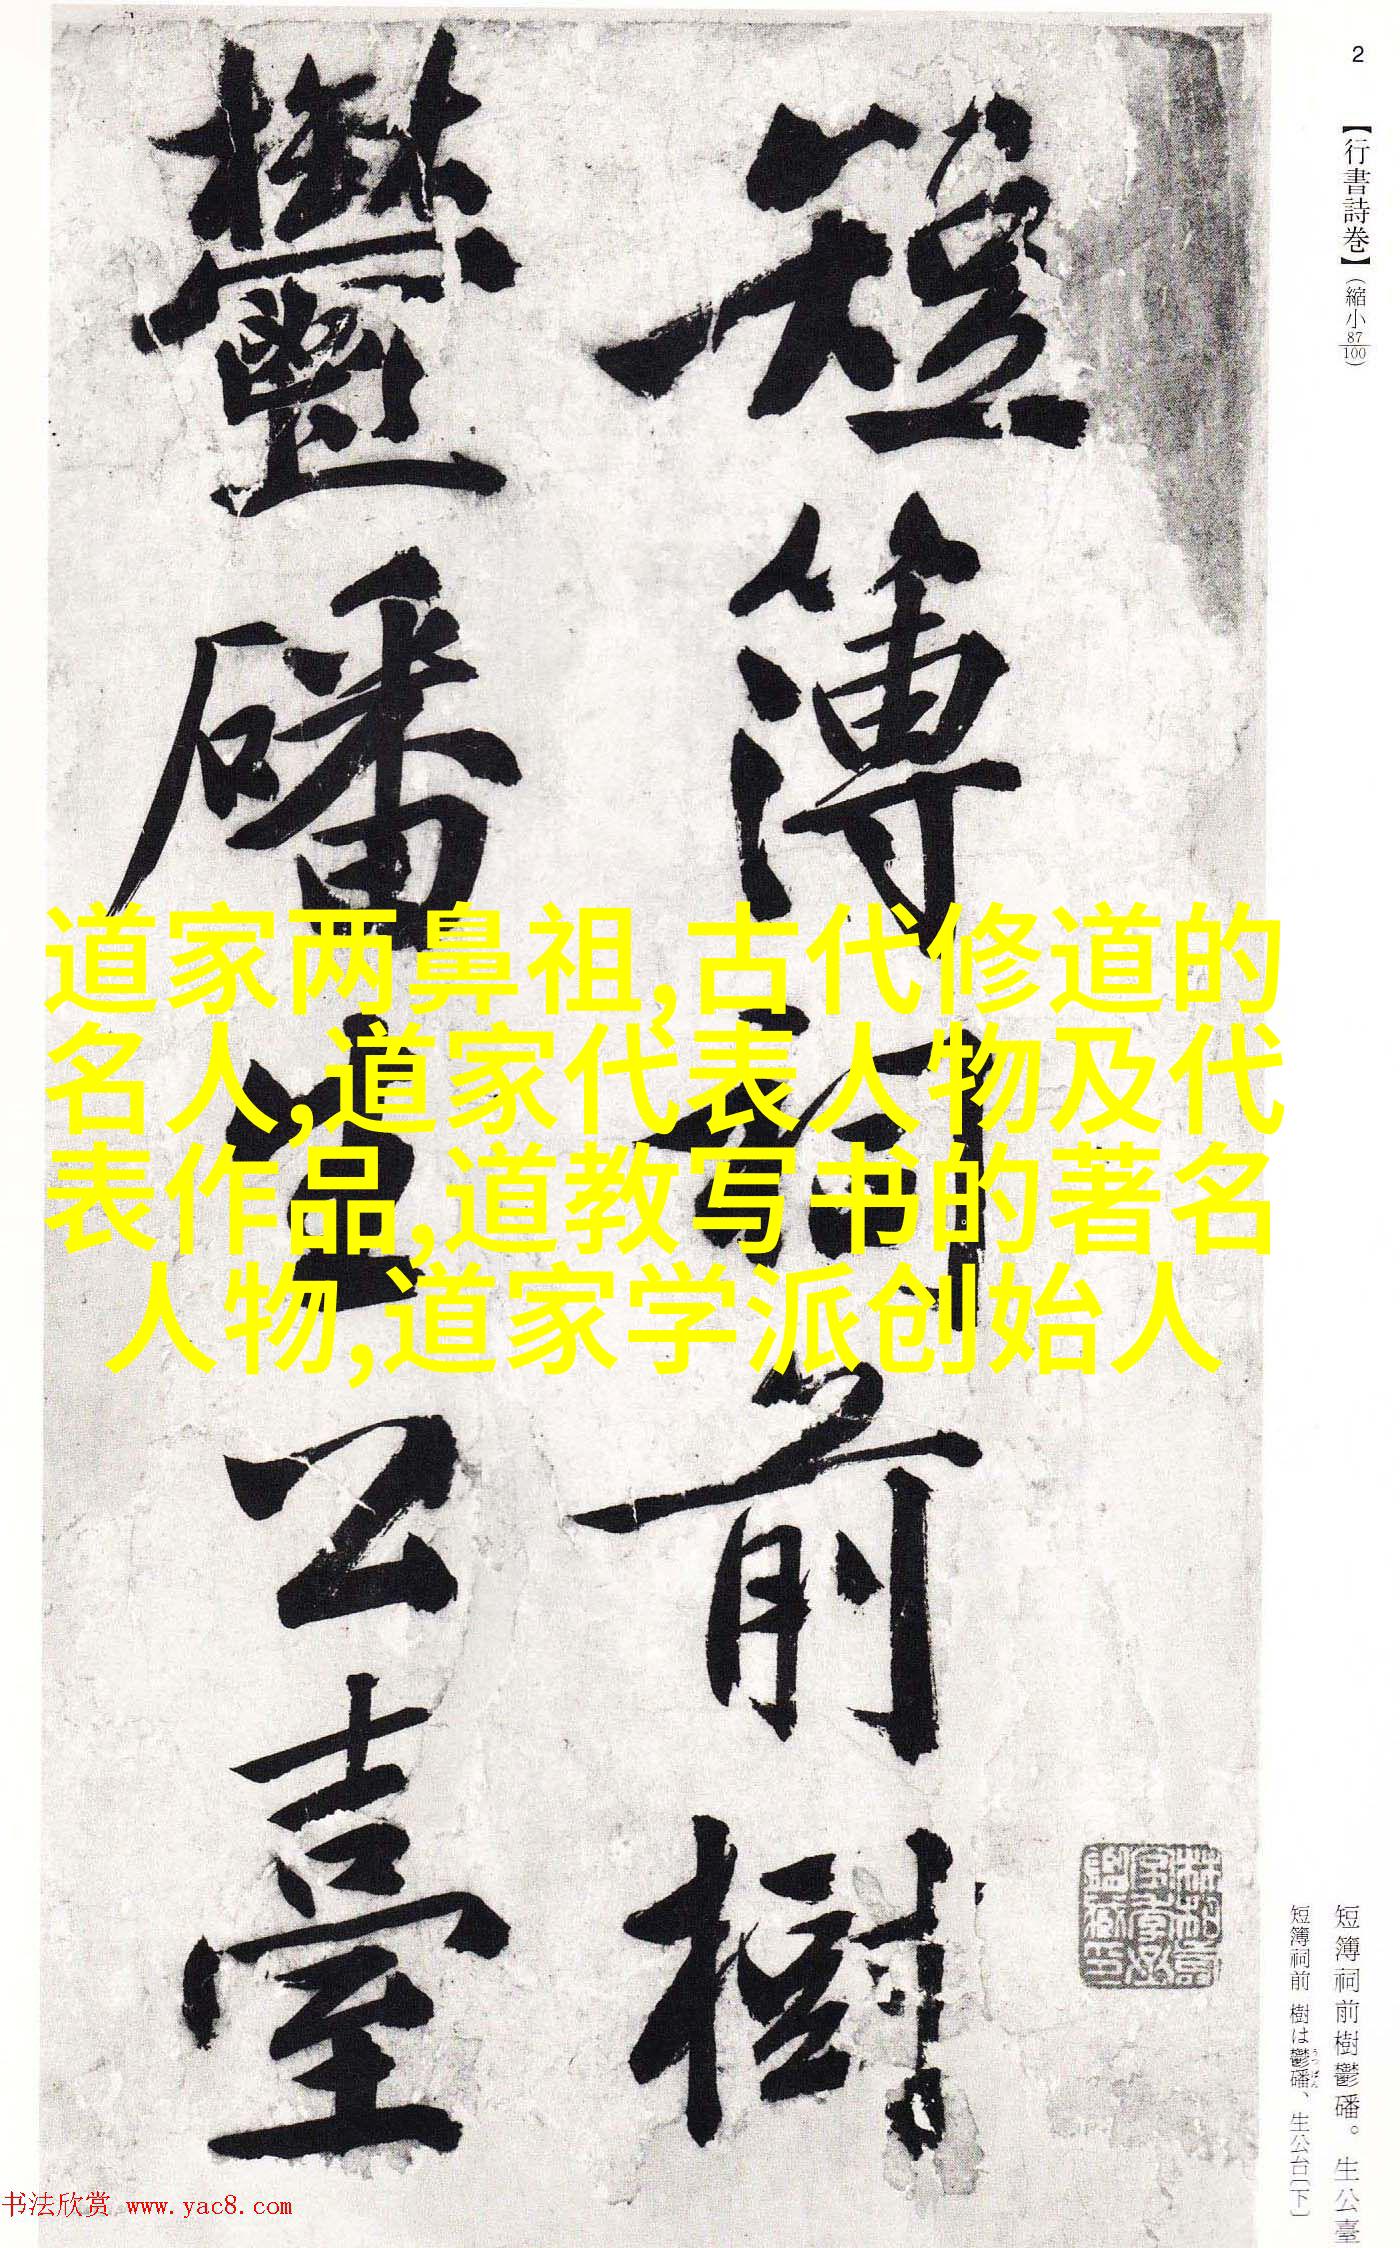 2
【行書詩巻】（縮小87/100）
短簿祠前樹
鬱磻生公臺
道家两鼻祖,古代修道的
名人,道家代表人物及代
表作品,道教写书的著名
人物,道家学派创始人
短簿祠前樹鬱磻。生公臺
短簿祠前 樹は鬱磻、生公台〔下〕
うっぱん
书法欣赏 www.yac8.com